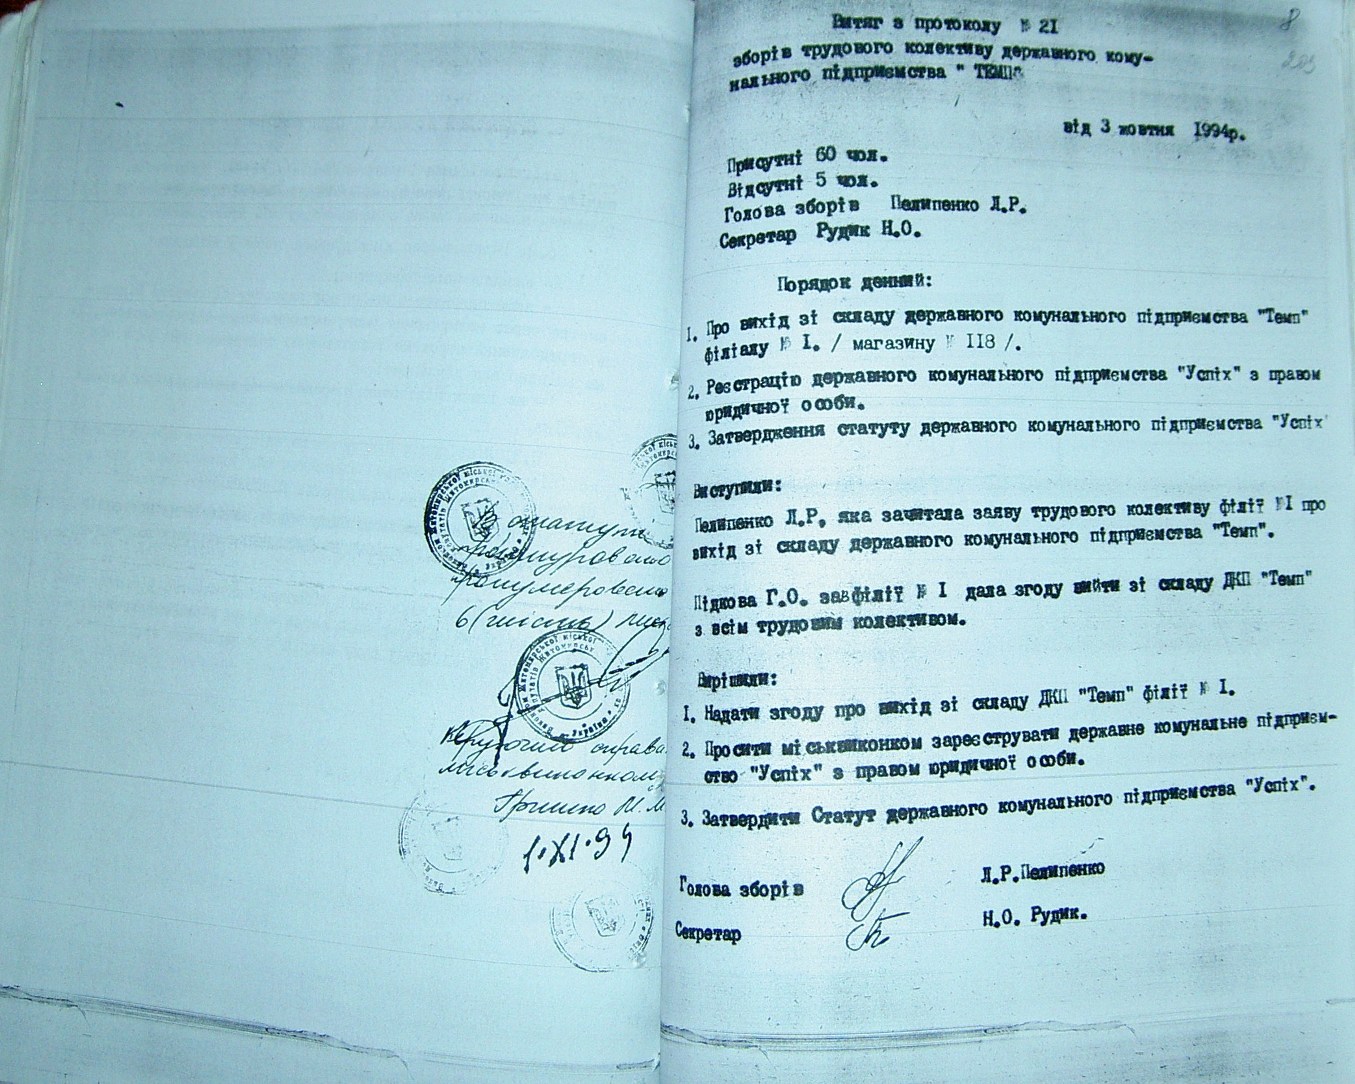 В статуті
прошнуровано
пронумеровано
6 (шість)
Керуючий справа
міськвиконком
Гришко
1.XI.94
8
Витяг з протоколу № 2I
зборів трудового колективу державного кому-
нального підприємства " ТЕМП"
від 3 жовтня I994р.
Присутні 60 чол.
Відсутні 5 чол.
Голова зборів Пелипенко Л.Р.
Секретар Рудик Н.О.
Порядок денний:
I. Про вихід зі складу державного комунального підприємства "Темп"
філіалу № I. / магазину № II8 /.
2. Реєстрацію державного комунального підприємства "Успіх" з правом
юридичної особи.
3. Затвердження статуту державного комунального підприємства "Успіх"
Виступили:
Пелипенко Л.Р. яка зачитала заяву трудового колективу філії №I про
вихід зі складу державного комунального підприємства "Темп".
Підкова Г.О. завфілії № I дала згоду вийти зі складу ДКП "Темп"
з всім трудовим колективом.
Вирішили:
I. Надати згоду про вихід зі складу ДКП "Темп" філії № I.
2. Просити міськвиконком зареєструвати державне комунальне підприєм-
ство "Успіх" з правом юридичної особи.
3. Затвердити Статут державного комунального підприємства "Успіх".
Голова зборів Л.Р.Пелипенко
Секретар Н.О. Рудик.